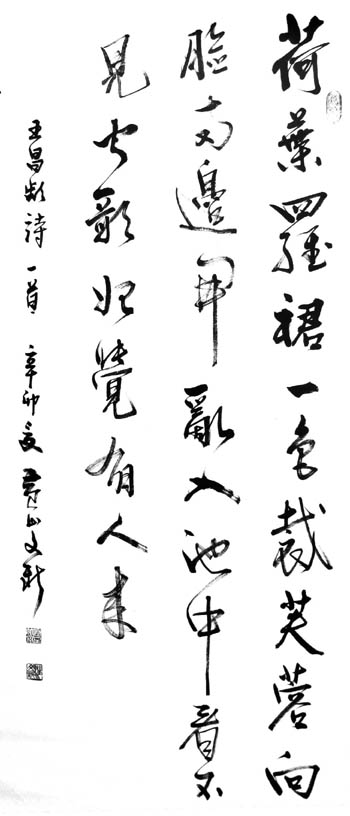 荷葉羅裙一色裁芙蓉向
臉兩邊開亂入池中看不
見聞歌始覺有人來
王昌齡詩一首 辛卯夏 黃山文